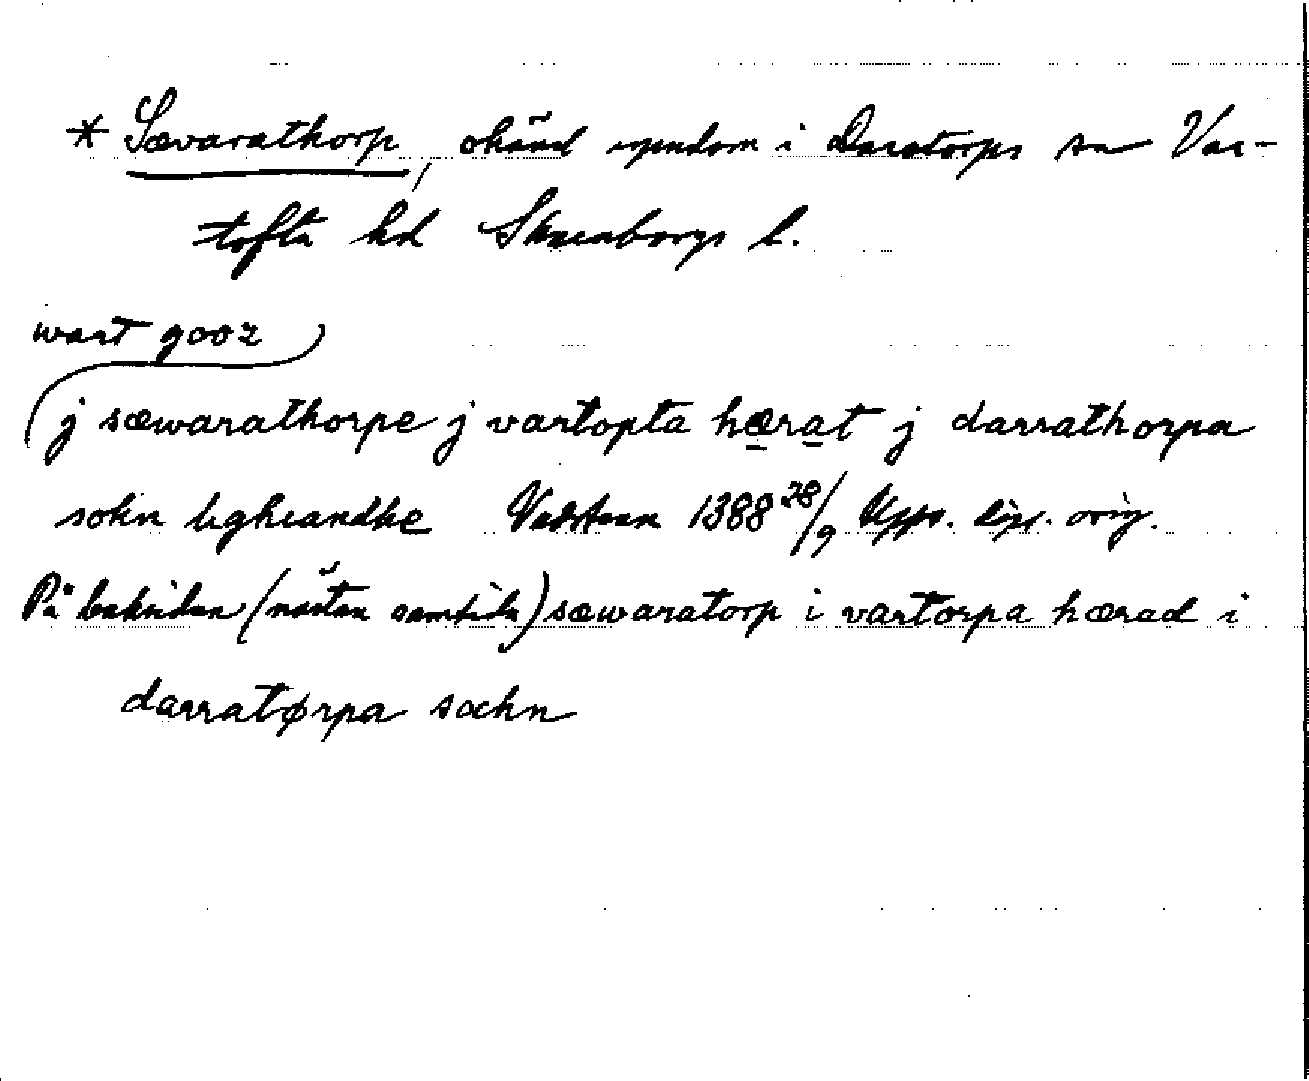 * Sævarathorp, okänd egendom i Daretorps sn Var-
tofta hd Skaraborgs l.
wart gooz
j sæwarathorpe j vartopta hærat j darrathorpa
sokn ligheandhe Vadstena 1388 28/9 Upps. dipl. orig.
På baksidan (nästan samtida) sæwaratorp i vartorpa hærad i
darratørpa sochn